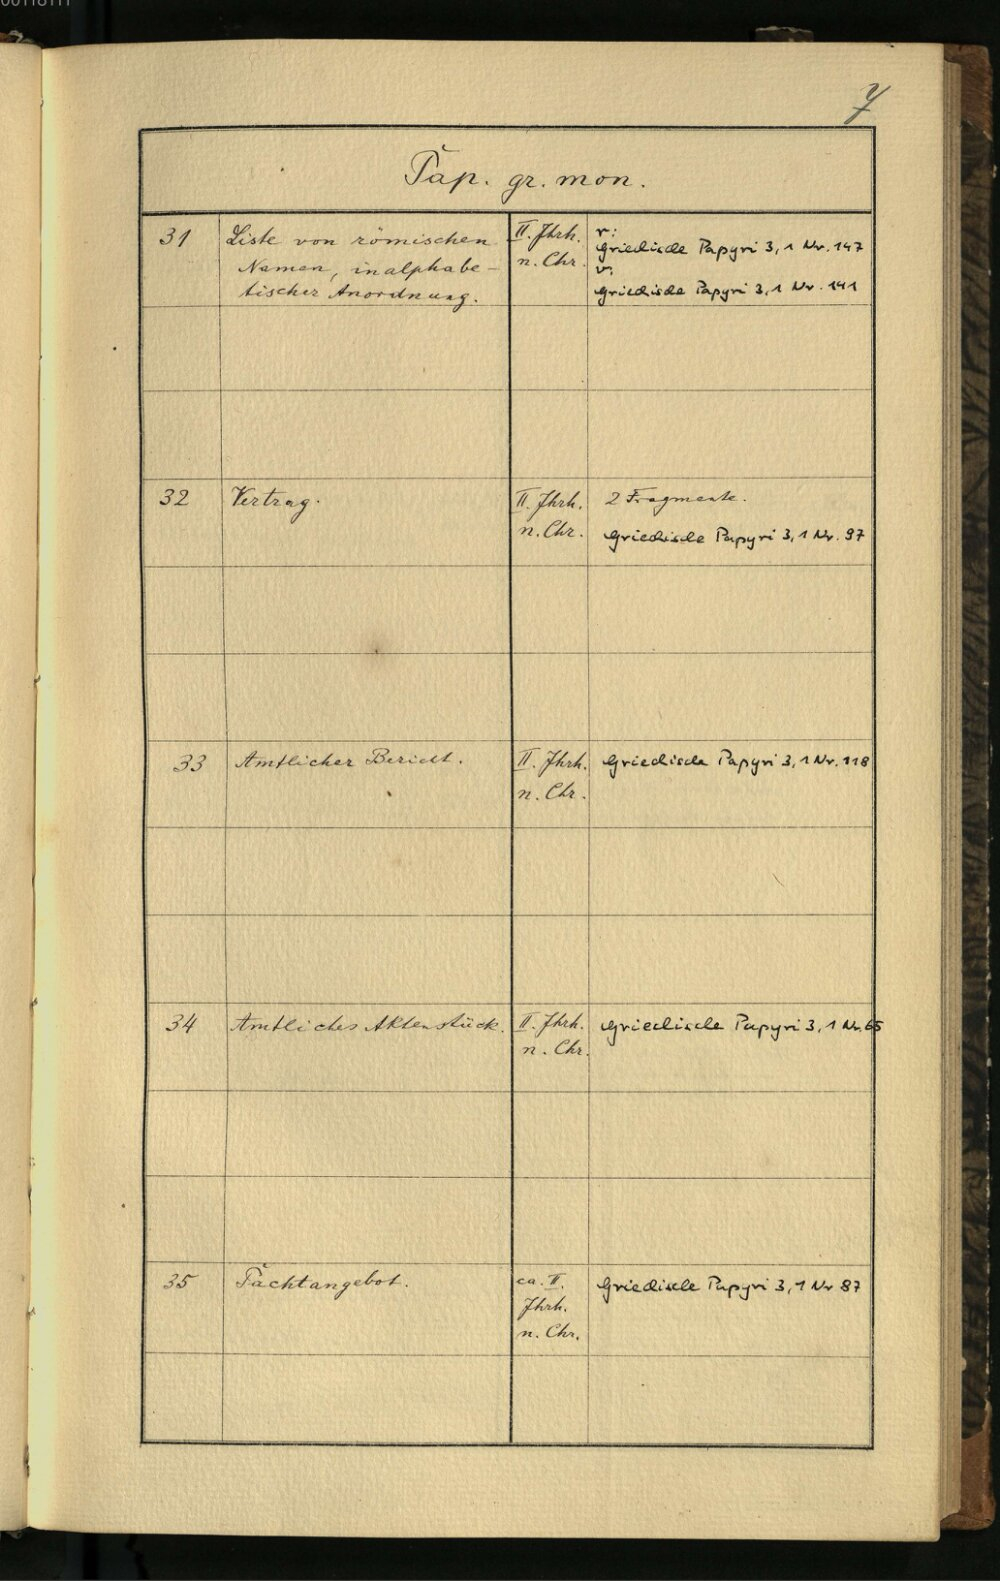 7
Pap. gr. mon.
31 Liste von römischen
Namen, in alphabe-
tischer Anordnung.
II. Jhrh.
n. Chr.
r:
Griechische Papyri 3,1 Nr. 147
v:
Griechische Papyri 3,1 Nr. 141
32 Vertrag.
II. Jhrh.
n. Chr.
2 Fragmente.
Griechische Papyri 3,1 Nr. 97
33 Amtlicher Bericht.
II. Jhrh.
n. Chr.
Griechische Papyri 3,1 Nr. 118
34 Amtliches Aktenstück.
II. Jhrh.
n. Chr.
Griechische Papyri 3,1 Nr. 65
35 Pachtangebot.
ca. II.
Jhrh.
n. Chr.
Griechische Papyri 3,1 Nr 87